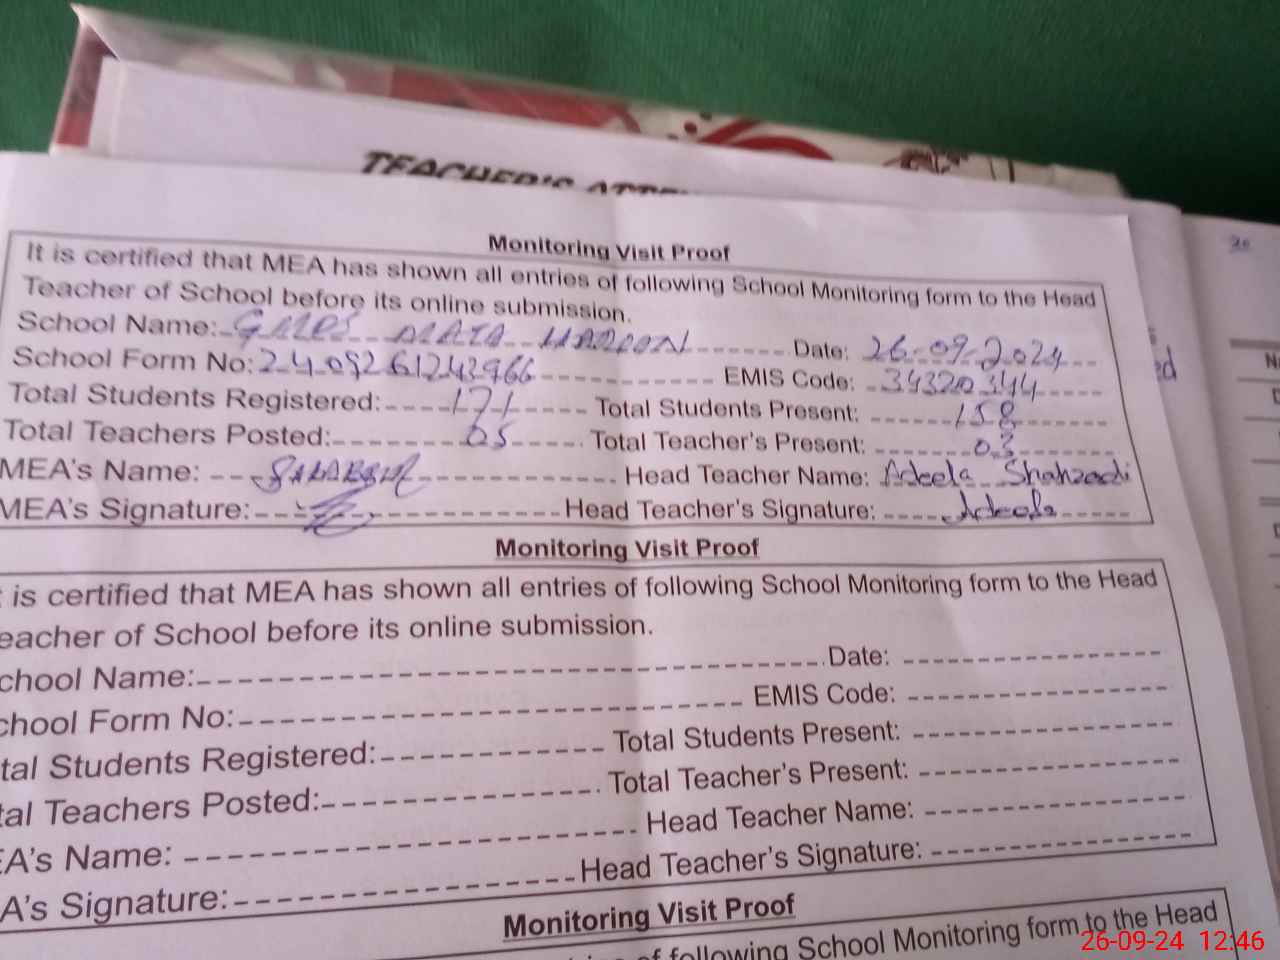 TEACHER'S
Monitoring Visit Proof
It is certified that MEA has shown all entries of following School Monitoring form to the Head
Teacher of School before its online submission.
School Name: Date: 26-09-2024
School Form No: 2409261242966 EMIS Code: 34320344
Total Students Registered: 171 Total Students Present: 158
Total Teachers Posted: 05 Total Teacher's Present: 03
MEA's Name: Head Teacher Name: Adeela Shahzadi
MEA's Signature: Head Teacher's Signature: Adeela
Monitoring Visit Proof
is certified that MEA has shown all entries of following School Monitoring form to the Head
eacher of School before its online submission.
chool Name: Date:
chool Form No: EMIS Code:
tal Students Registered: Total Students Present:
tal Teachers Posted: Total Teacher's Present:
EA's Name: Head Teacher Name:
A's Signature: Head Teacher's Signature:
Monitoring Visit Proof
of following School Monitoring form to the Head
26-09-24 12:46